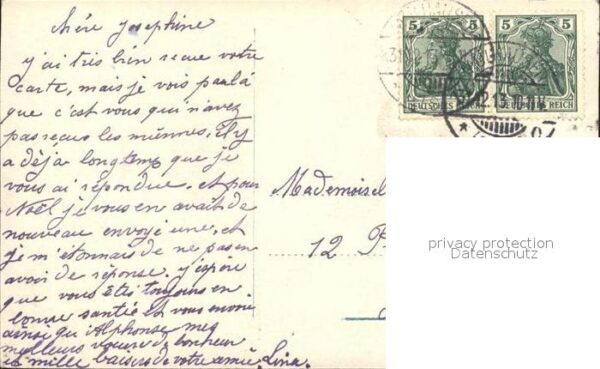 chére Josephine
y'ai trés bien recue votre
carte, mais je vois par là
que c'est vous qui n'avez
pas recus les miennes. Il y
a déja longtemp que je
vous ai répondue. et pour
Noël je vous en avait de
nouveau envoyé une. et
je m'étonnais de ne pas en
avoir de réponse. j'éspére
que vous êtes toujours en
bonne santié et vous envoie
ainsi qu'Alphonse mes
meilleurs voeux de bonheur
et mille baisers de votre amie. Lina.
5 5
DEUTSCHES REICH
DEUTSCHES REICH
Mademoisel
12 P
privacy protection
Datenschutz